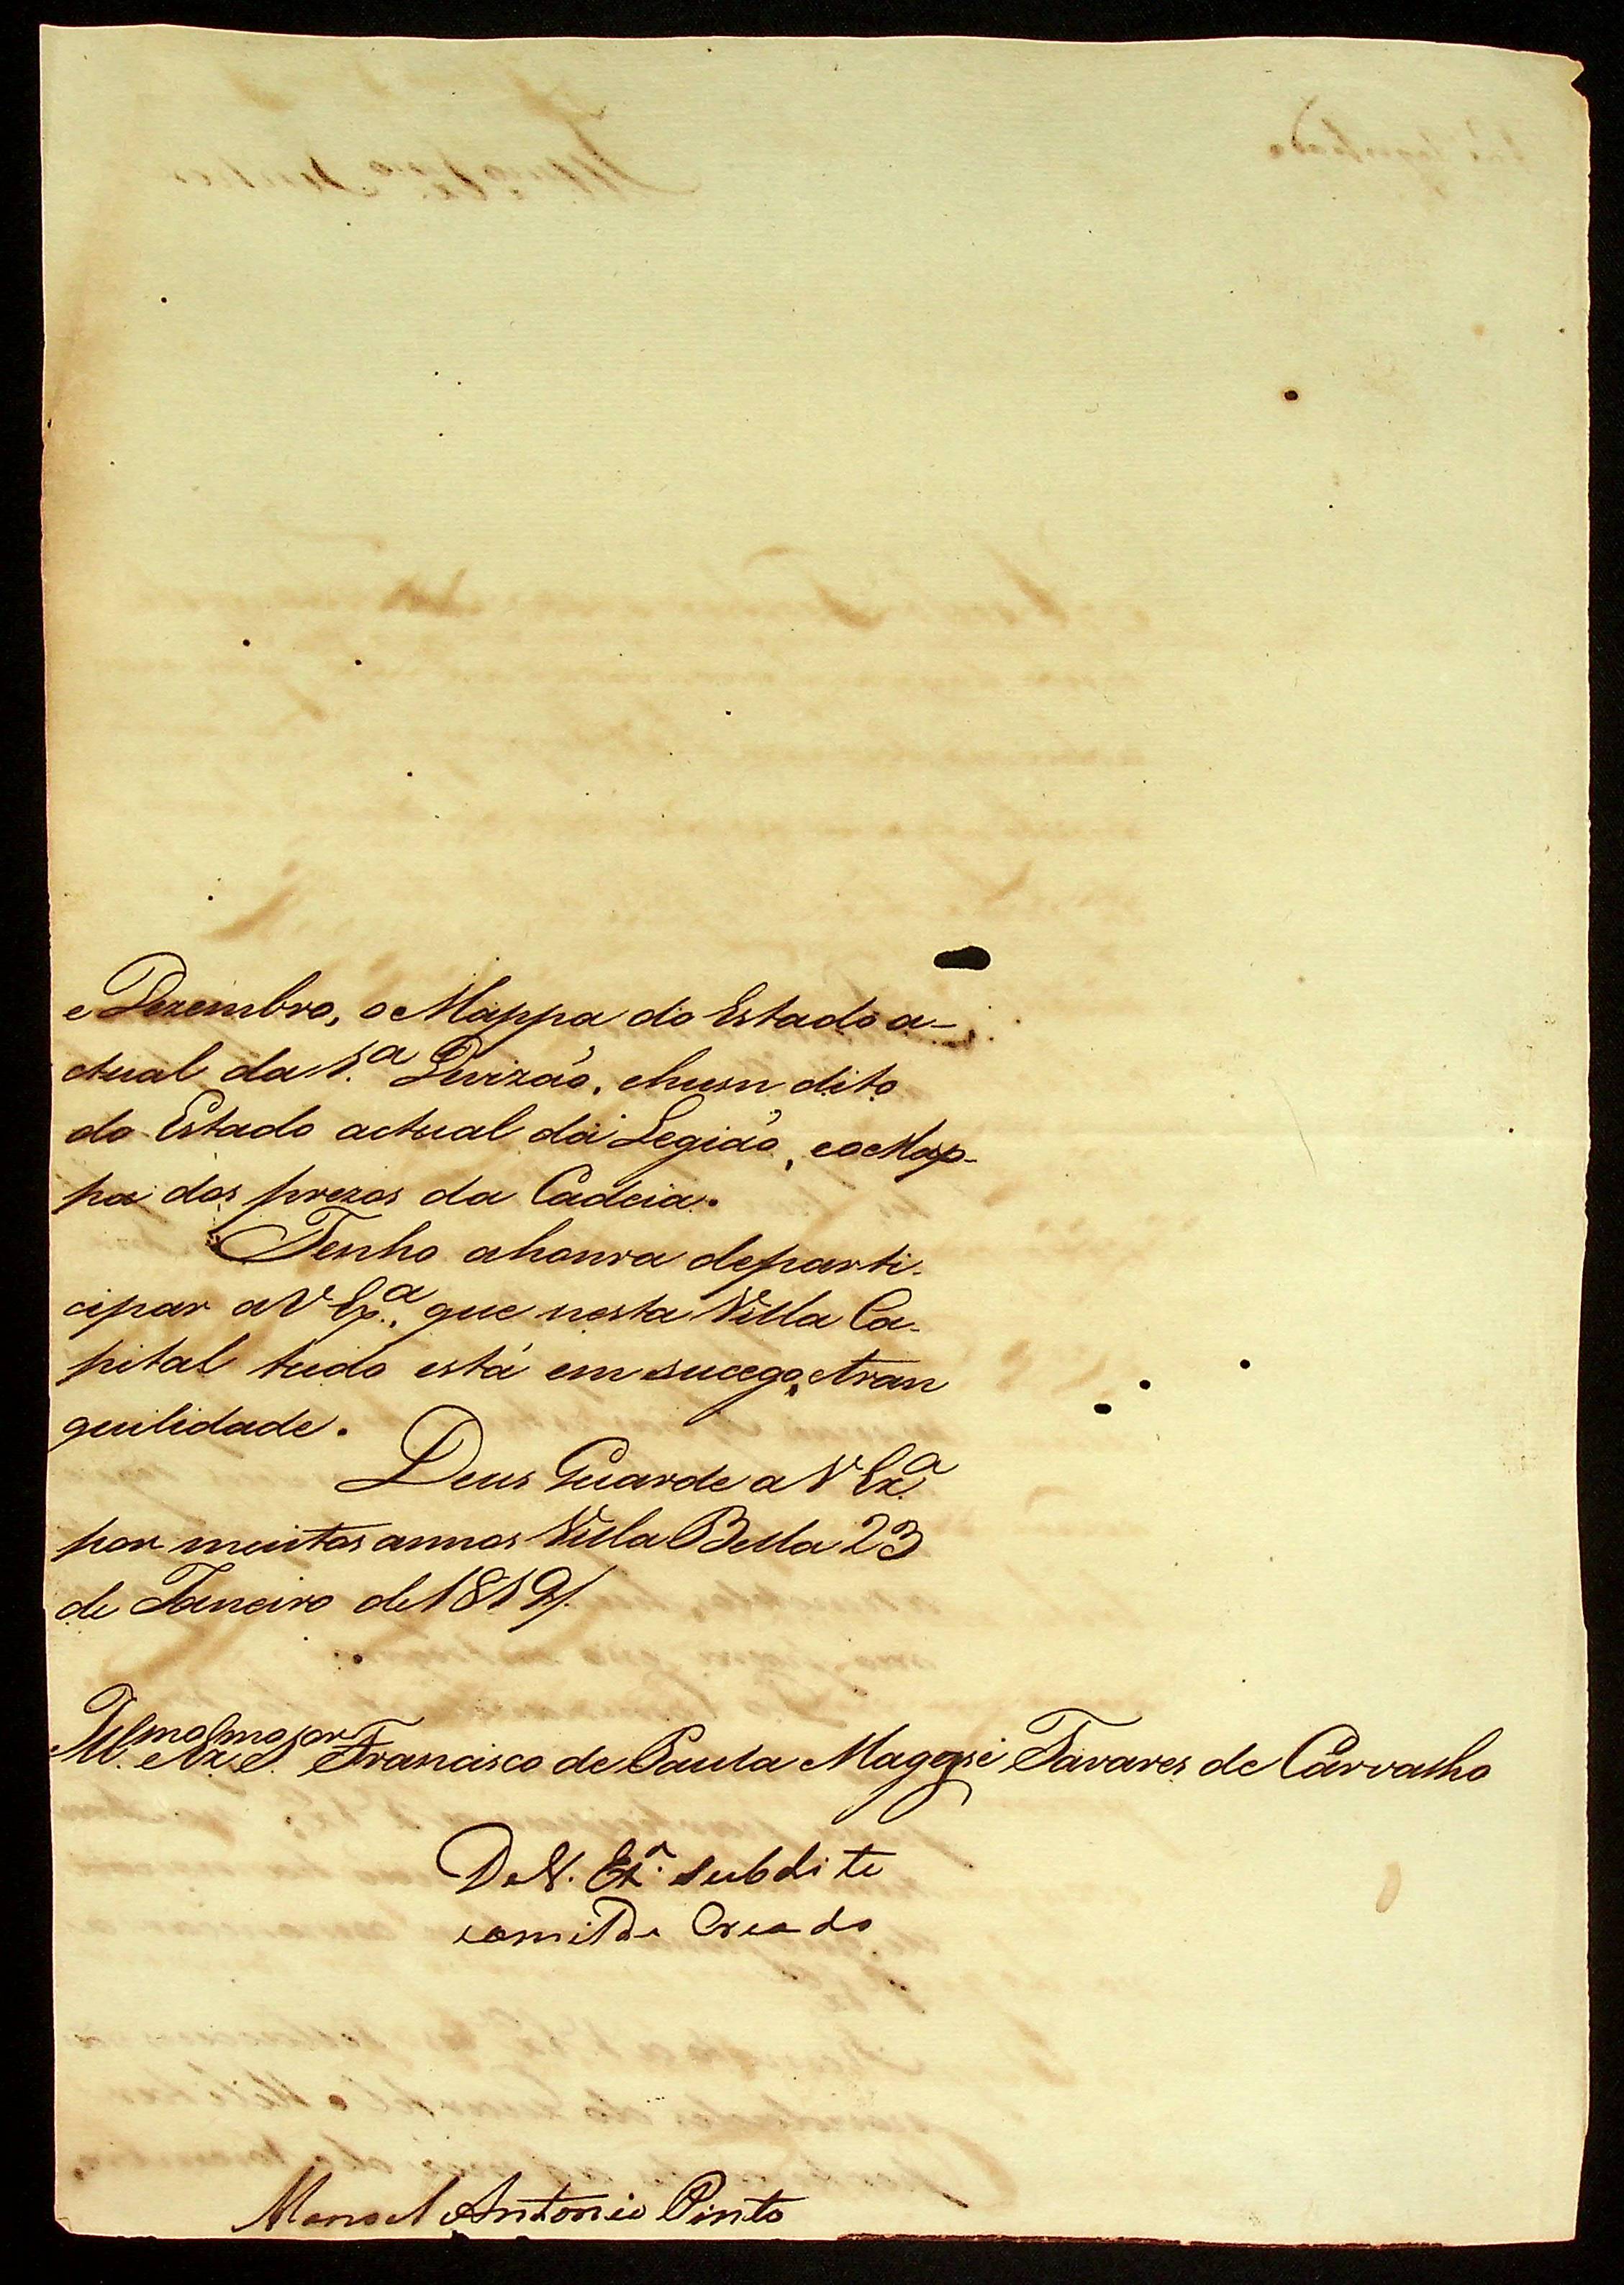 e Dezembro, o Mappa do Estado a-
ctual da 1.ª Divizão, e hum dito
do Estado actual da Legião, e o Map-
pa dos prezos da Cadeia.
Tenho a honra de parti-
cipar a V Ex.ª, que nesta Villa Ca-
pital tudo está em sucego, e tran
quilidade.
Deus Guarde a V Ex.ª
por muitos annos Villa Bella 23
de Janeiro de 1819/.
Ill.mo e Ex.mo S.or Francisco de Paula Magessi Tavares de Carvalho
De V. Ex.ª subdito
Creado
Manoel Antonio Pinto